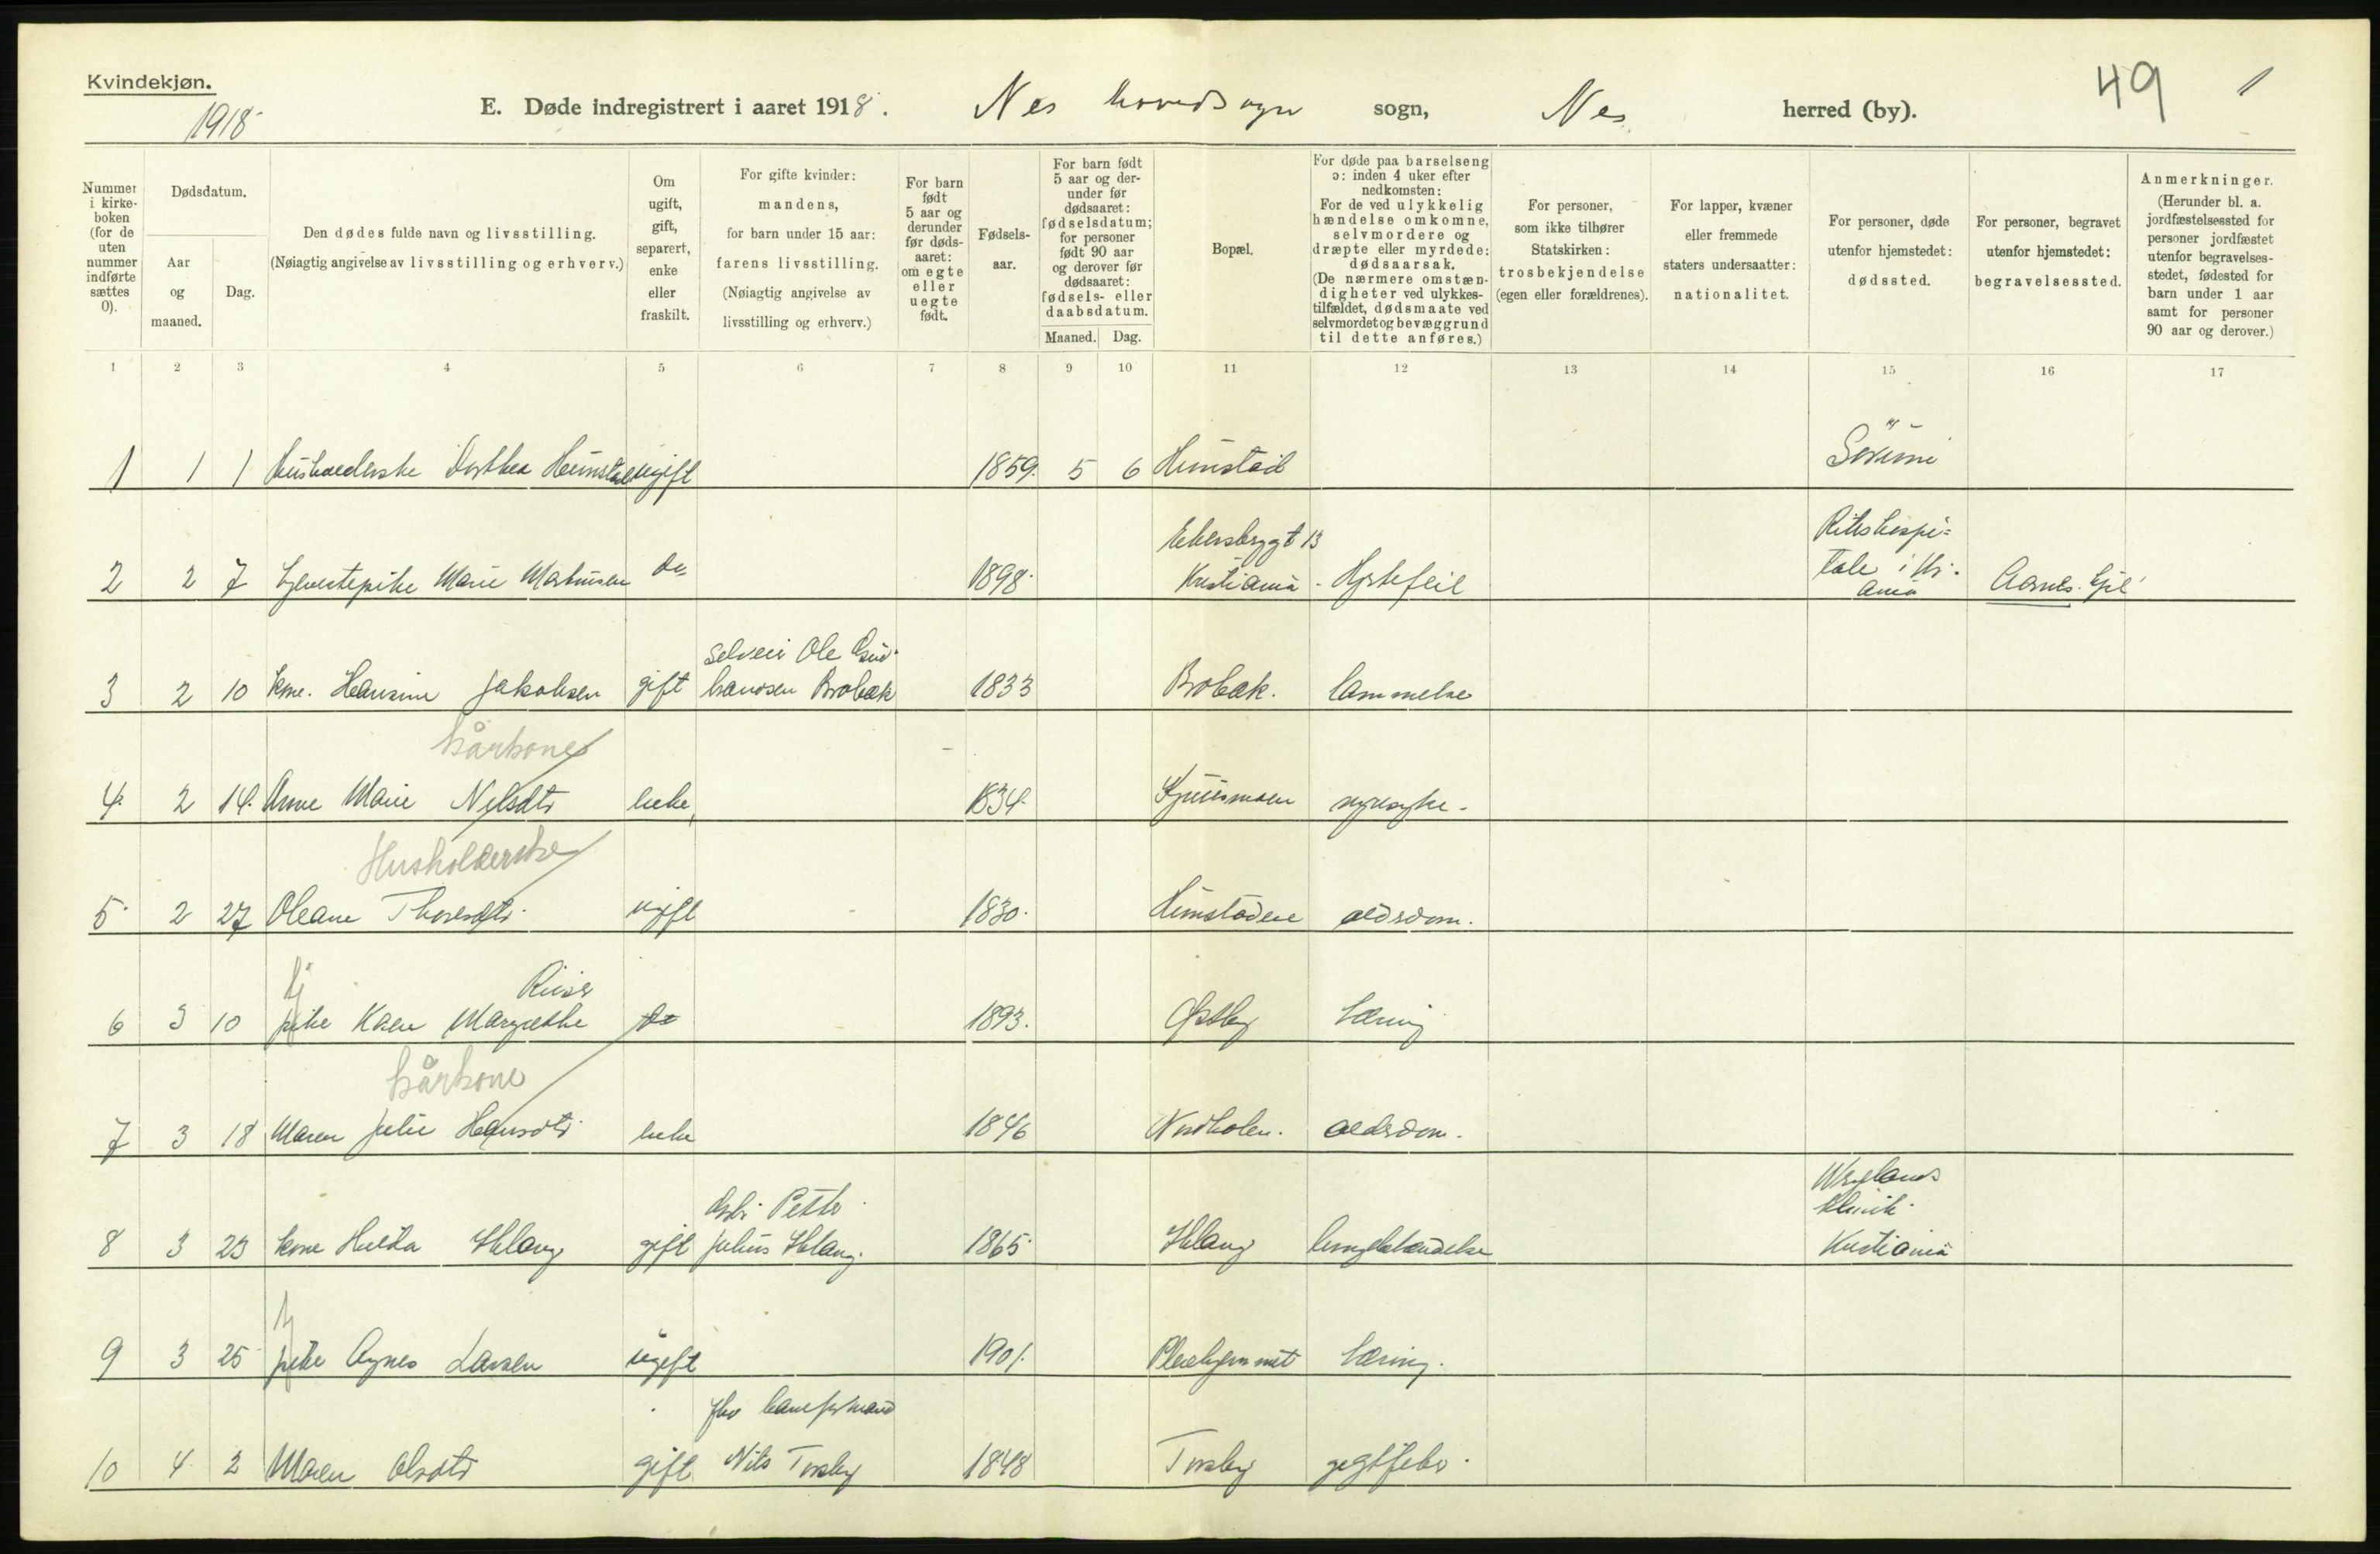 Kvindekjøn.
1918
E. Døde indregistrert i aaret 1918.
Nes hovedsogn sogn, Nes herred (by).
49 1
Nummer i kirkeboken (for de uten nummer indførte sættes 0).
Dødsdatum.
Aar og maaned.
Dag.
Den dødes fulde navn og livsstilling.
(Nøiagtig angivelse av livsstilling og erhverv.)
Om ugift, gift, separert, enke eller fraskilt.
For gifte kvinder: mandens, for barn under 15 aar: farens livsstilling.
(Nøiagtig angivelse av livsstilling og erhverv.)
For barn født 5 aar og derunder før dødsaaret: om egte eller uegte født.
Fødselsaar.
For barn født 5 aar og derunder før dødsaaret: fødselsdatum; for personer født 90 aar og derover før dødsaaret: fødsels- eller daabsdatum.
Maaned. Dag.
Bopæl.
For døde paa barselseng ɔ: inden 4 uker efter nedkomsten:
For de ved ulykkelig hændelse omkomne, selvmordere og dræpte eller myrdede: dødsaarsak.
(De nærmere omstændigheter ved ulykkestilfældet, dødsmaate ved selvmordet og bevæggrund til dette anføres.)
For personer, som ikke tilhører Statskirken: trosbekjendelse (egen eller forældrenes).
For lapper, kvæner eller fremmede staters undersaatter: nationalitet.
For personer, døde utenfor hjemstedet: dødssted.
For personer, begravet utenfor hjemstedet: begravelsessted.
Anmerkninger.
(Herunder bl. a. jordfæstelsessted for personer jordfæstet utenfor begravelsesstedet, fødested for barn under 1 aar samt for personer 90 aar og derover.)
1 2 3 4 5 6 7 8 9 10 11 12 13 14 15 16 17
1 1 1 Husholderske Dorthea Heimstad ugift 1859. 5 6 Himstad
2 2 7 Tjenestepike Marie Martinsen do 1898. Kristiania. Hjertefeil Aarnes
3 2 10 kone. Hansine Jakobsen gift Selveier Ole Brobæk 1833 Brobæk. lammelse
kårkone
4. 2 14. Anne Marie Nilsdtr enke, 1834. nyresyke.
Husholderske
5 2 27 Oleane Thoresdtr. ugift 1830. alderdom.
6 3 10 pike Karen Margrethe do 1893. Østby Tæring
kårkone
7 3 18 Maren Julie Hansdtr enke 1846 Nordholen. alderdom.
8 3 23 kone Hulda gift Petter Julius 1865 lungebetændelse klinik. Kristiania
9 3 25 pike Agnes Larsen ugift 1901. Pleiehjemmet Tæring.
10 4 2 Maren Olsdtr gift Nils Torsby 1848 Torsby gigtfeber.